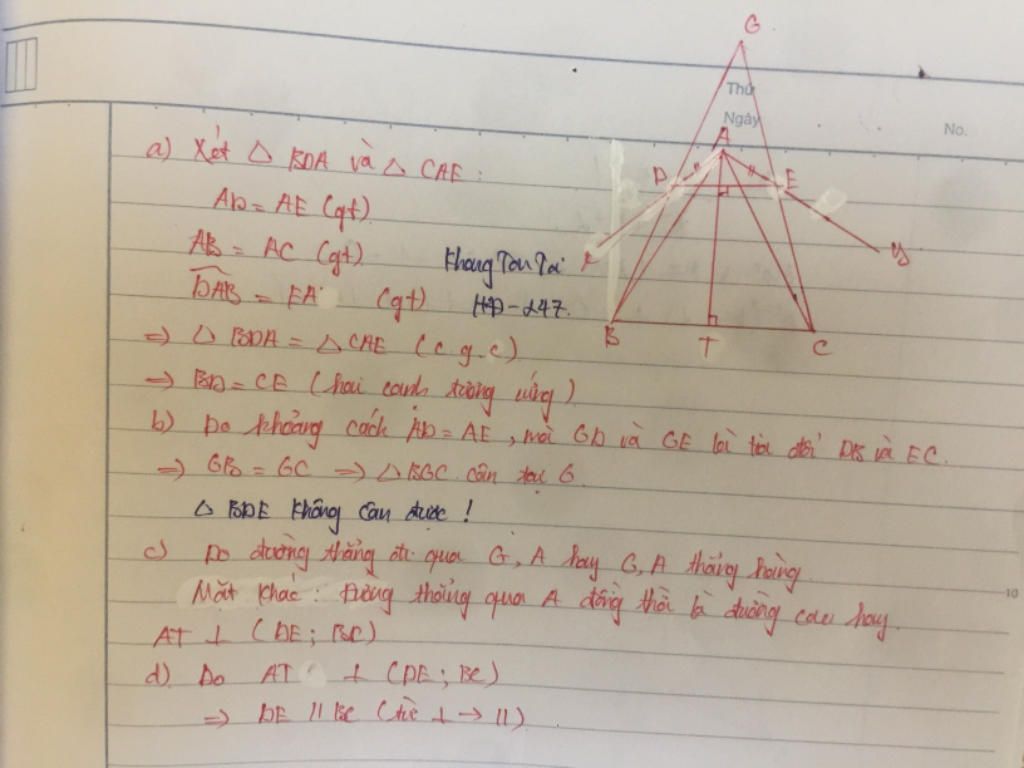 G
Thứ
Ngày
No.
A
D
E
x
y
B
T
C
a) Xét △ BDA và △ CAE :
AD = AE (gt)
AB = AC (gt)
Khong Ton Tai
DAB = EA (gt)
HD-247.
=> △ BDA = △ CAE (c.g.c)
=> BD = CE (hai cạnh tương ứng)
b) Do khoảng cách AD = AE, mà GD và GE là tia đối DB và EC.
=> GB = GC => △ BGC cân tại G.
△ BDE không cân được !
c) Do đường thẳng đi qua G, A hay G, A thẳng hàng
Mặt khác : Đường thẳng qua A đồng thời là đường cao hay
10
AT ⊥ (DE ; BC)
d) Do AT ⊥ (DE ; BC)
=> DE // BC (từ ⊥ → //)